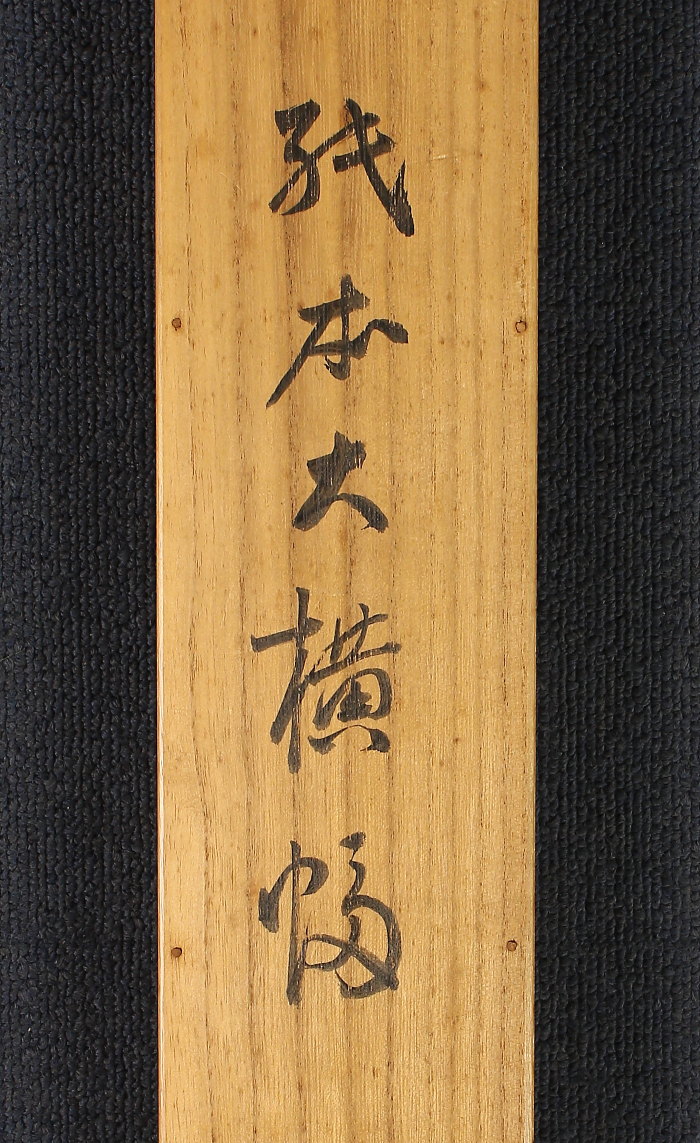 紙本大横幅